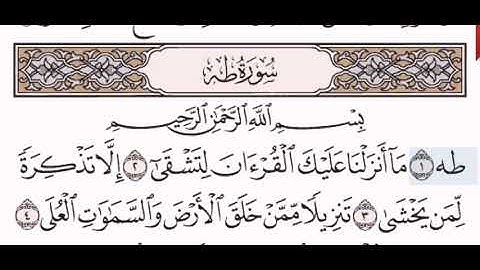 سُورَةُ طه
بِسْمِ اللَّهِ الرَّحْمَٰنِ الرَّحِيمِ
طه ١ مَآ أَنزَلْنَا عَلَيْكَ الْقُرْءَانَ لِتَشْقَىٰٓ ٢ إِلَّا تَذْكِرَةً
لِّمَن يَخْشَىٰ ٣ تَنزِيلًا مِّمَّنْ خَلَقَ الْأَرْضَ وَالسَّمَٰوَٰتِ الْعُلَى ٤